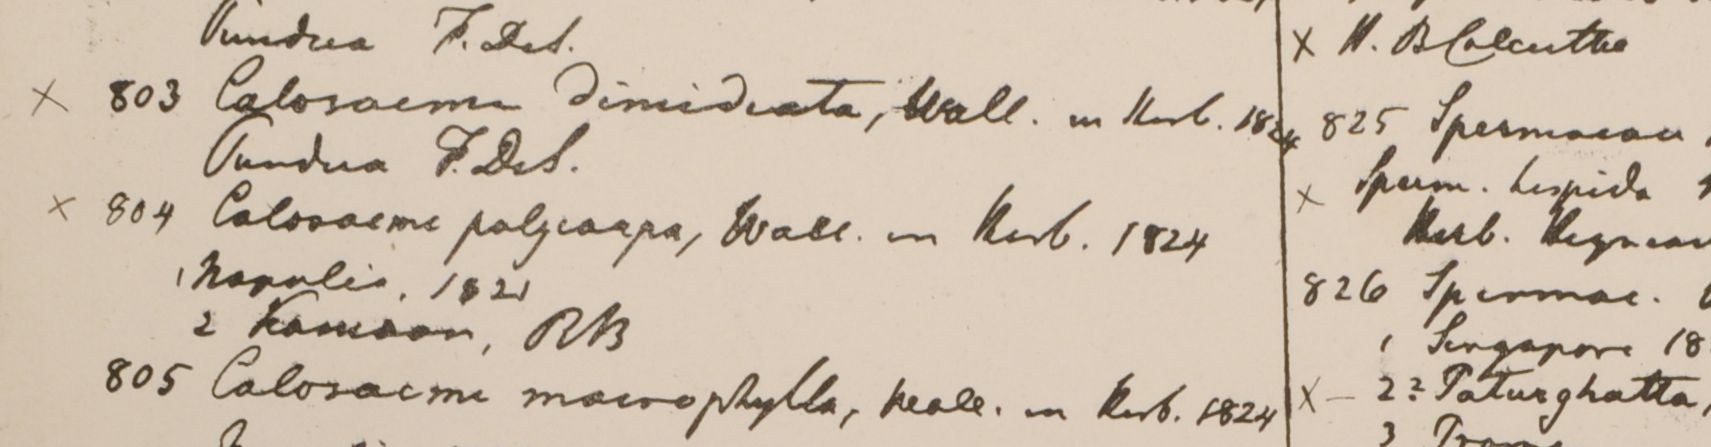 Pundua F. Des.
× 803 Calosacme dimidiata, Wall. in Herb. 1824
Pundua F. Des.
× 804 Calosacme polycarpa, Wall. in Herb. 1824
1 Napalia, 1821
2 Kamaon, RB
805 Calosacme macrophylla, Wall. in Herb. 1824
× H. B Calcutta
825 Spermacoce
× Sperm. hispida
Herb. Heyneau
826 Spermac.
1 Singapore 18
×– 2? Paturghatta,
3